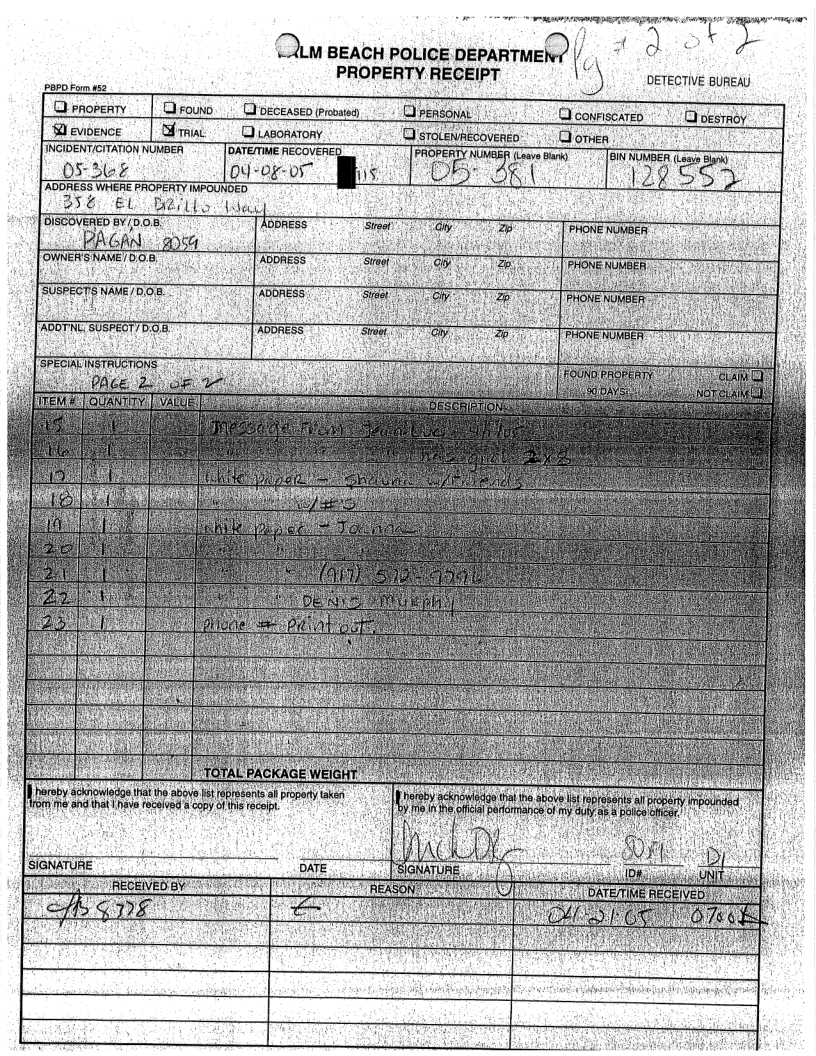 Pg # 2 of 2
PALM BEACH POLICE DEPARTMENT
PROPERTY RECEIPT
DETECTIVE BUREAU
PBPD Form #52
PROPERTY FOUND DECEASED (Probated) PERSONAL CONFISCATED DESTROY
EVIDENCE TRIAL LABORATORY STOLEN/RECOVERED OTHER
INCIDENT/CITATION NUMBER DATE/TIME RECOVERED PROPERTY NUMBER (Leave Blank) BIN NUMBER (Leave Blank)
05-368 04-08-05 115 05-381 128552
ADDRESS WHERE PROPERTY IMPOUNDED
358 EL Brillo Way
DISCOVERED BY / D.O.B. ADDRESS Street City Zip PHONE NUMBER
PAGAN 8059
OWNER'S NAME / D.O.B. ADDRESS Street City Zip PHONE NUMBER
SUSPECT'S NAME / D.O.B. ADDRESS Street City Zip PHONE NUMBER
ADDT'NL. SUSPECT / D.O.B. ADDRESS Street City Zip PHONE NUMBER
SPECIAL INSTRUCTIONS FOUND PROPERTY CLAIM
PAGE 2 OF 2 90 DAYS: NOT CLAIM
ITEM # QUANTITY VALUE DESCRIPTION
15 1 Message from
16 1 " " has girl 2x8
17 1 white paper - Shauna w/friends
18 1 " w/#S
19 1 white paper - Joanna
20 1 " "
21 1 " " (917)
22 1 " " DENIS Murphy
23 1 phone # Print out.
TOTAL PACKAGE WEIGHT
I hereby acknowledge that the above list represents all property taken
from me and that I have received a copy of this receipt.
I hereby acknowledge that the above list represents all property impounded
by me in the official performance of my duty as a police officer.
D1
SIGNATURE DATE SIGNATURE ID# UNIT
RECEIVED BY REASON DATE/TIME RECEIVED
8378 04-21-05 0700